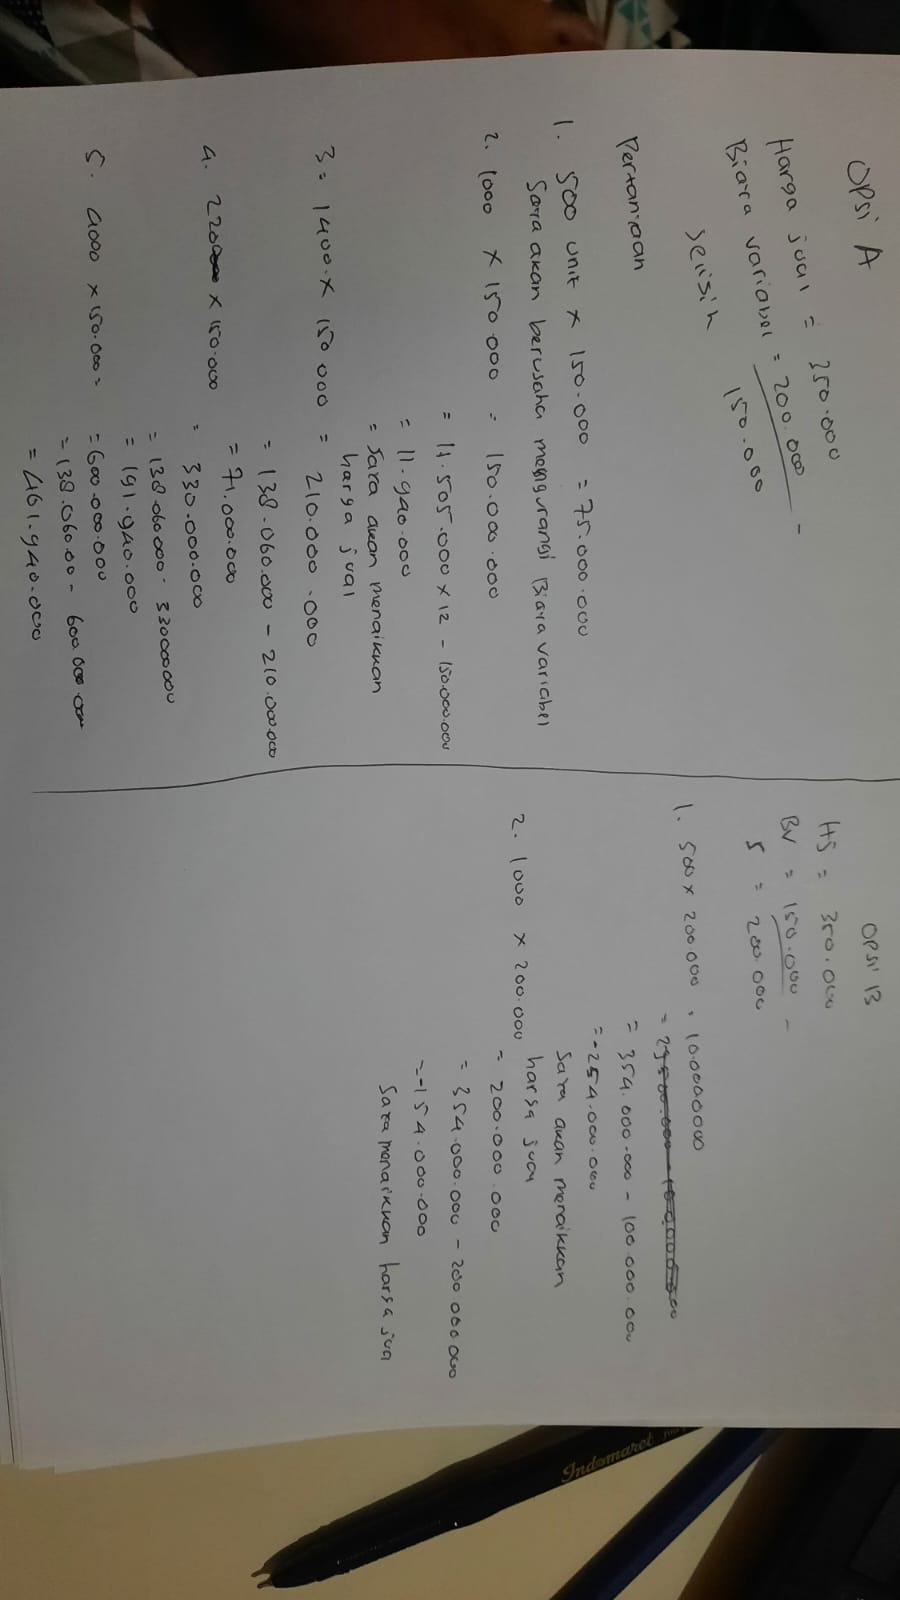 OPSi A
Harga jual = 350.000
Biaya variabel = 200.000 -
Selisih 150.000
Pertanyaan
1. 500 unit x 150.000 = 75.000.000
Saya akan berusaha mengurangi Biaya variabel
2. 1000 x 150.000 = 150.000.000
= 11.505.000 x 12 - 150.000.000
= 11.940.000
= Saya akan menaikkan
harga jual
3 = 1400 x 150 000 = 210.000.000
= 138.060.000 - 210.000.000
= 71.000.000
4. 2200 x 150.000 = 330.000.000
= 138.060.000 - 33000000
= 191.940.000
5. 4000 x 150.000 = = 600.000.000
= 138.060.00 - 600.000.000
= 461.940.000
OPSi B
HS = 350.000
BV = 150.000 -
S = 200.000
1. 500 x 200.000 = 100.000000
= 354.000.000 - 100.000.000
= -254.000.000
Saya akan menaikkan
harga jual
2. 1000 x 200.000 = 200.000.000
= 354.000.000 - 200.000.000
= -154.000.000
Saya menaikkan harga jua
Indomaret